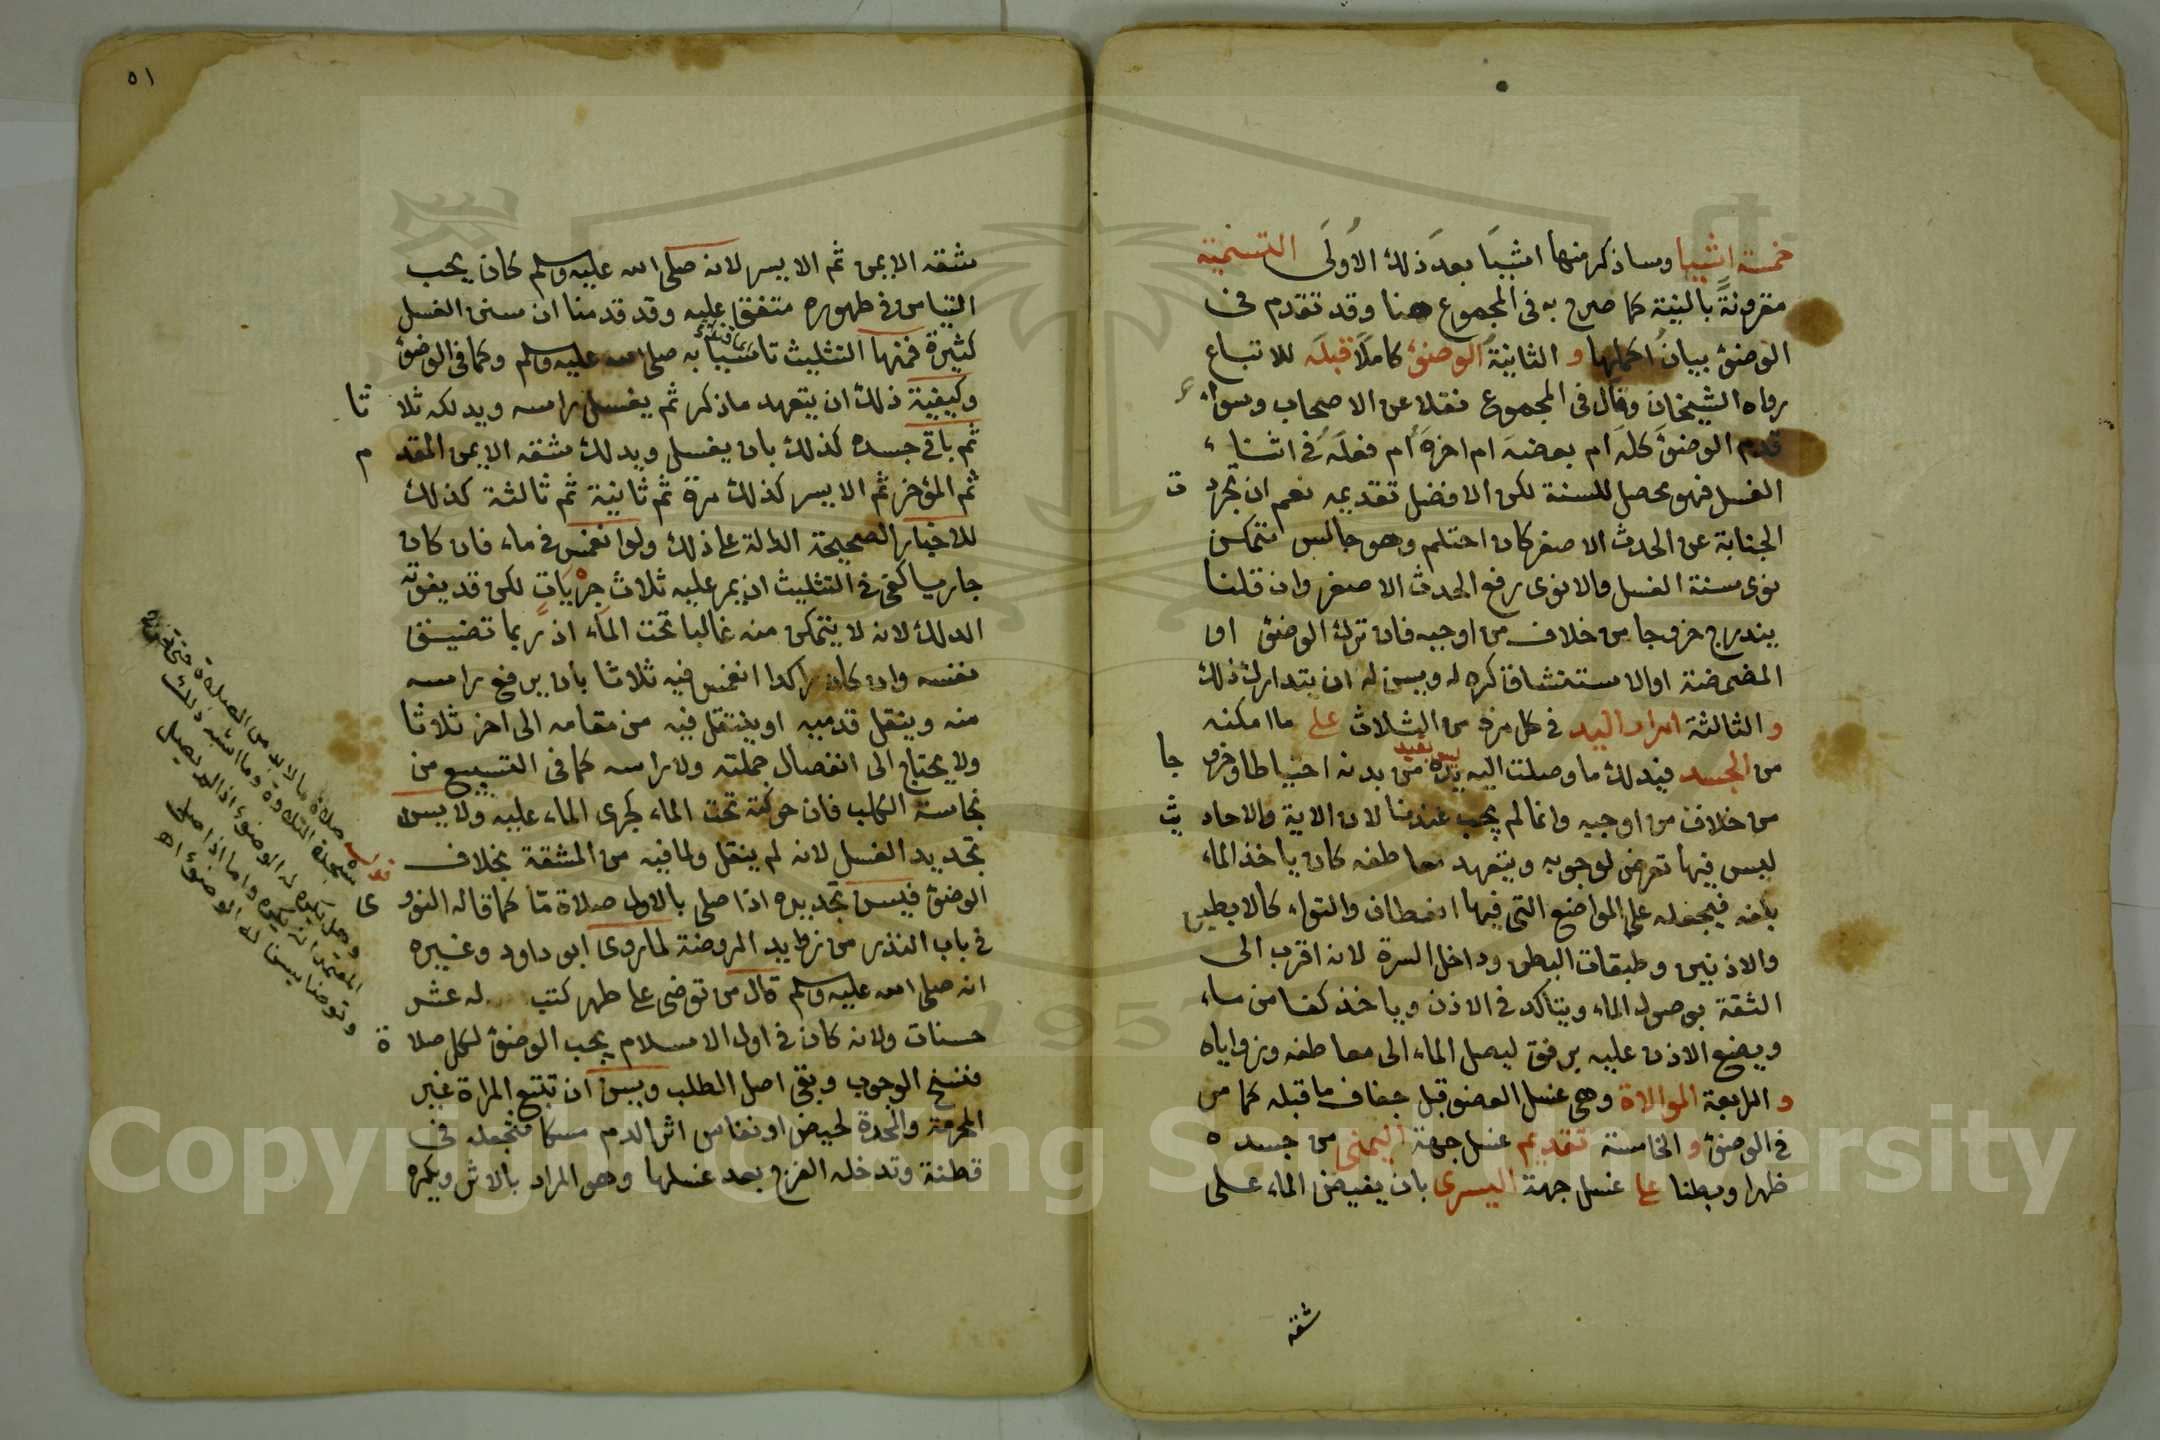 خمسة اشيا وساذكر منها اشيبا بعد ذلك الاولى التسمية
مقرونة بالنية كما صرح به فى المجموع هنا وقد تقدم فى
الوضوء بيان اكملها و الثانية الوضوء كاملا قبله للاتباع
رواه الشيخان وقال فى المجموع نقلا عن الاصحاب وسواء
قدم الوضوء كله ام بعضه ام اخره ام فعله فى اثناء
الغسل فهو محصل للسنة لكن الافضل تقديمه نعم ان تجردت
الجنابة عن الحدث الاصغر كان احتلم وهو جالس متمكن
نوى سنة الغسل والا نوى رفع الحدث الاصغر وان قلنا
يندرج خروجا من خلاف من اوجبه فان ترك الوضوء او
المضمضة او الاستنشاق كره له ويسن له ان يتدارك ذلك
و الثالثة امرار اليد فى كل مرة من الثلاث على ما امكنه
من الجسد فيدلك ما وصلت اليه يده من بدنه احتياطا وخروجا
من خلاف من اوجبه وانما لم يجب عندنا لان الاية والاحاديث
ليس فيها تعرض لوجوبه ويتعهد معاطفه كان ياخذ الماء
بكفه فيجعله على المواضع التى فيها انعطاف والتواء كالابطين
والاذنين وطبقات البطن وداخل السرة لانه اقرب الى
الثقة بوصول الماء ويتاكد فى الاذن وياخذ كفا من ماء
ويضع الاذن عليه برفق ليصل الماء الى معاطفه وزواياه
و الرابعة الموالاة وهى غسل العضو قبل جفاف ما قبله كما مر
فى الوضوء و الخامسة تقديم غسل جهة اليمنى من جسده
ظهرا وبطنا على غسل جهة اليسرى بان يفيض الماء على
شقه
٥١
شقه الايمن ثم الايسر لانه صلى الله عليه وسلم كان يحب
التيامن فى طهوره متفق عليه وقد قدمنا ان سنن الغسل
كثيرة فمنها التثليث تاسيا به صلى الله عليه وسلم وكما فى الوضوء
وكيفية ذلك ان يتعهد ما ذكر ثم يغسل راسه ويدلكه ثلاثا
ثم باقى جسده كذلك بان يغسل ويدلك شقه الايمن المقدم
ثم المؤخر ثم الايسر كذلك مرة ثم ثانية ثم ثالثة كذلك
للاخبار الصحيحة الدالة على ذلك ولو انغمس فى ماء فان كان
جاريا كفى فى التثليث ان يمر عليه ثلاث جريات لكن قد يفوته
الدلك لانه لا يتمكن منه غالبا تحت الماء اذ ربما تضيق
نفسه وان كان راكدا انغمس فيه ثلاثا بان يرفع راسه
منه وينقل قدميه او ينتقل فيه من مقامه الى اخر ثلاثا
ولا يحتاج الى انفصال جملته ولا راسه كما فى التسبيع من
نجاسة الكلب فان حركته تحت الماء كجرى الماء عليه ولا يسن
تجديد الغسل لانه لم ينقل ولما فيه من المشقة بخلاف
الوضوء فيسن تجديده اذا صلى بالاول صلاة ما كما قاله النووى
فى باب النذر من زوايد الروضة لما روى ابو داود وغيره
انه صلى الله عليه وسلم قال من توضى على طهر كتب له عشر
حسنات ولانه كان فى اول الاسلام يجب الوضوء لكل صلاة
فنسخ الوجوب وبقى اصل الطلب ويسن ان تتبع المراة غير
المحرمة والمحدة لحيض او نفاس اثر الدم مسكا فتجعله فى
قطنة وتدخله الفرج بعد غسلها وهو المراد بالاثر ويكره
قوله صلاة ما لا بد من الصلاة
سجدة التلاوة وما اشبه ذلك
له الوضوء اذا لم يصل
واما اذا صلى
وتوضا يسن له الوضوء اه
Copyright © King Saud University
1957